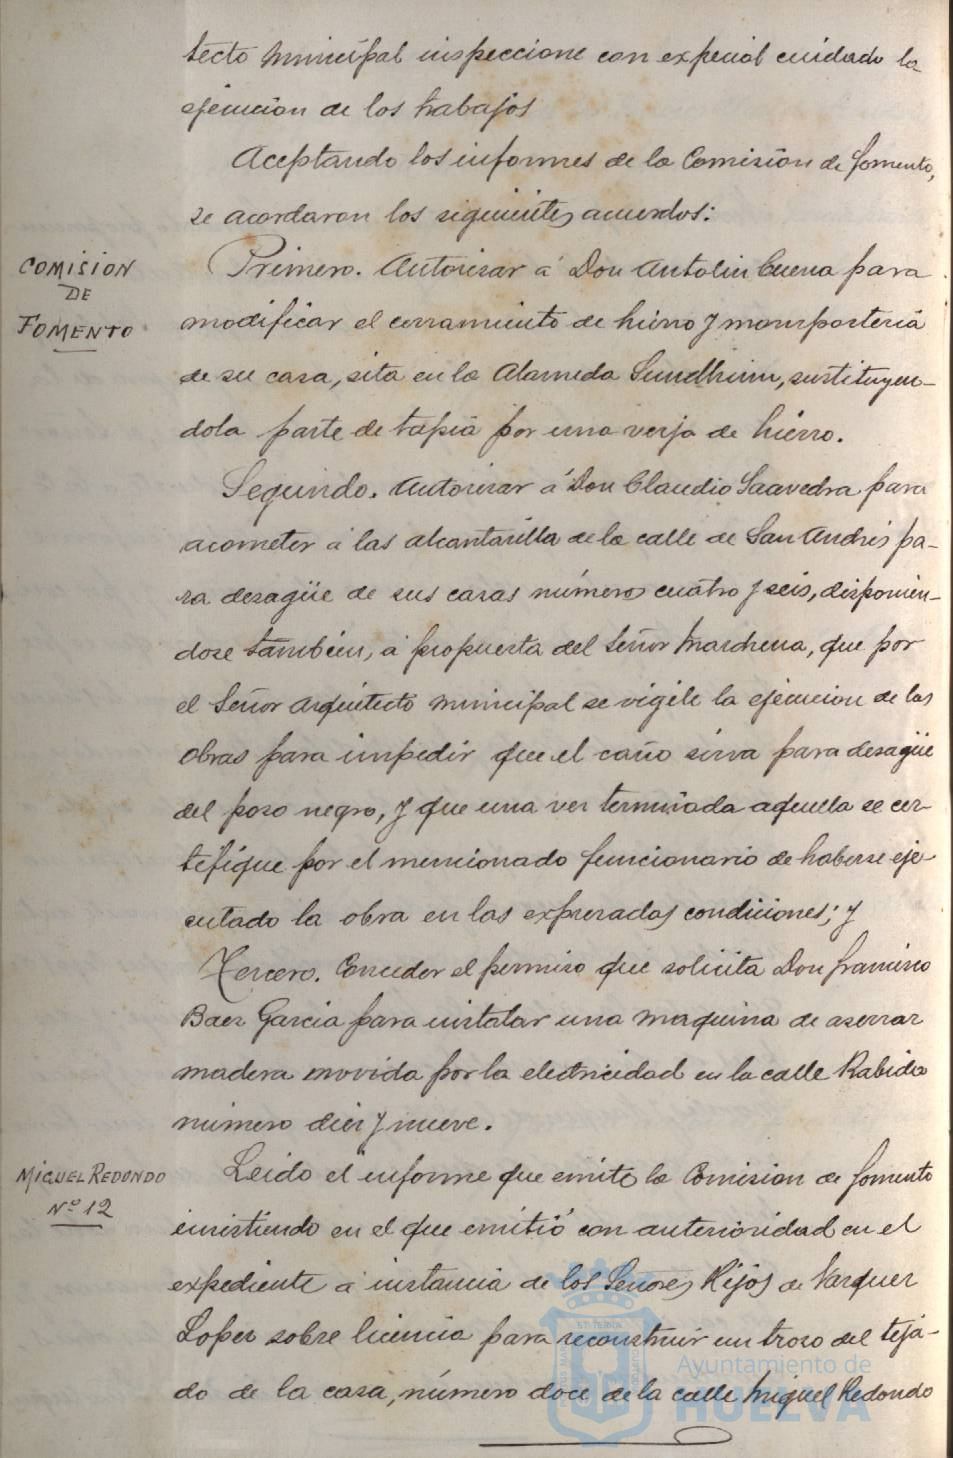 tecto Municipal inspeccione con especial cuidado la
ejecución de los trabajos
Aceptando los informes de la Comisión de fomento,
se acordaron los siguientes acuerdos:
COMISION
DE
FOMENTO
Primero. Autorizar á Don Antolin Cuena para
modificar el cerramiento de hierro y mampostería
de su casa, sita en la Alameda Sundheim, sustituyen-
dola parte de tapia por una verja de hierro.
Segundo. Autorizar á Don Claudio Saavedra para
acometer á las alcantarilla de la calle de San Andrés pa-
ra desagüe de sus casas números cuatro y seis, disponien-
dose también, á propuesta del Señor Marchena, que por
el Señor Arquitecto municipal se vigile la ejecucion de las
obras para impedir que el caño sirva para desagüe
del pozo negro, y que una vez terminada aquella se cer-
tifique por el mencionado funcionario de haberse eje-
cutado la obra en las expresadas condiciones; y
Tercero. Conceder el permiso que solicita Don francisco
Baez García para instalar una maquina de aserrar
madera movida por la electricidad en la calle Rabida
número diez y nueve.
MIGUEL REDONDO
Nº 12
Leido el informe que emite la Comision de fomento
insistiendo en el que emitió con anterioridad en el
expediente á instancia de los Señores Hijos de Vazquez
Lopez sobre licencia para reconstruir un trozo del teja-
do de la casa, número doce de la calle Miguel Redondo
Ayuntamiento de
HUELVA